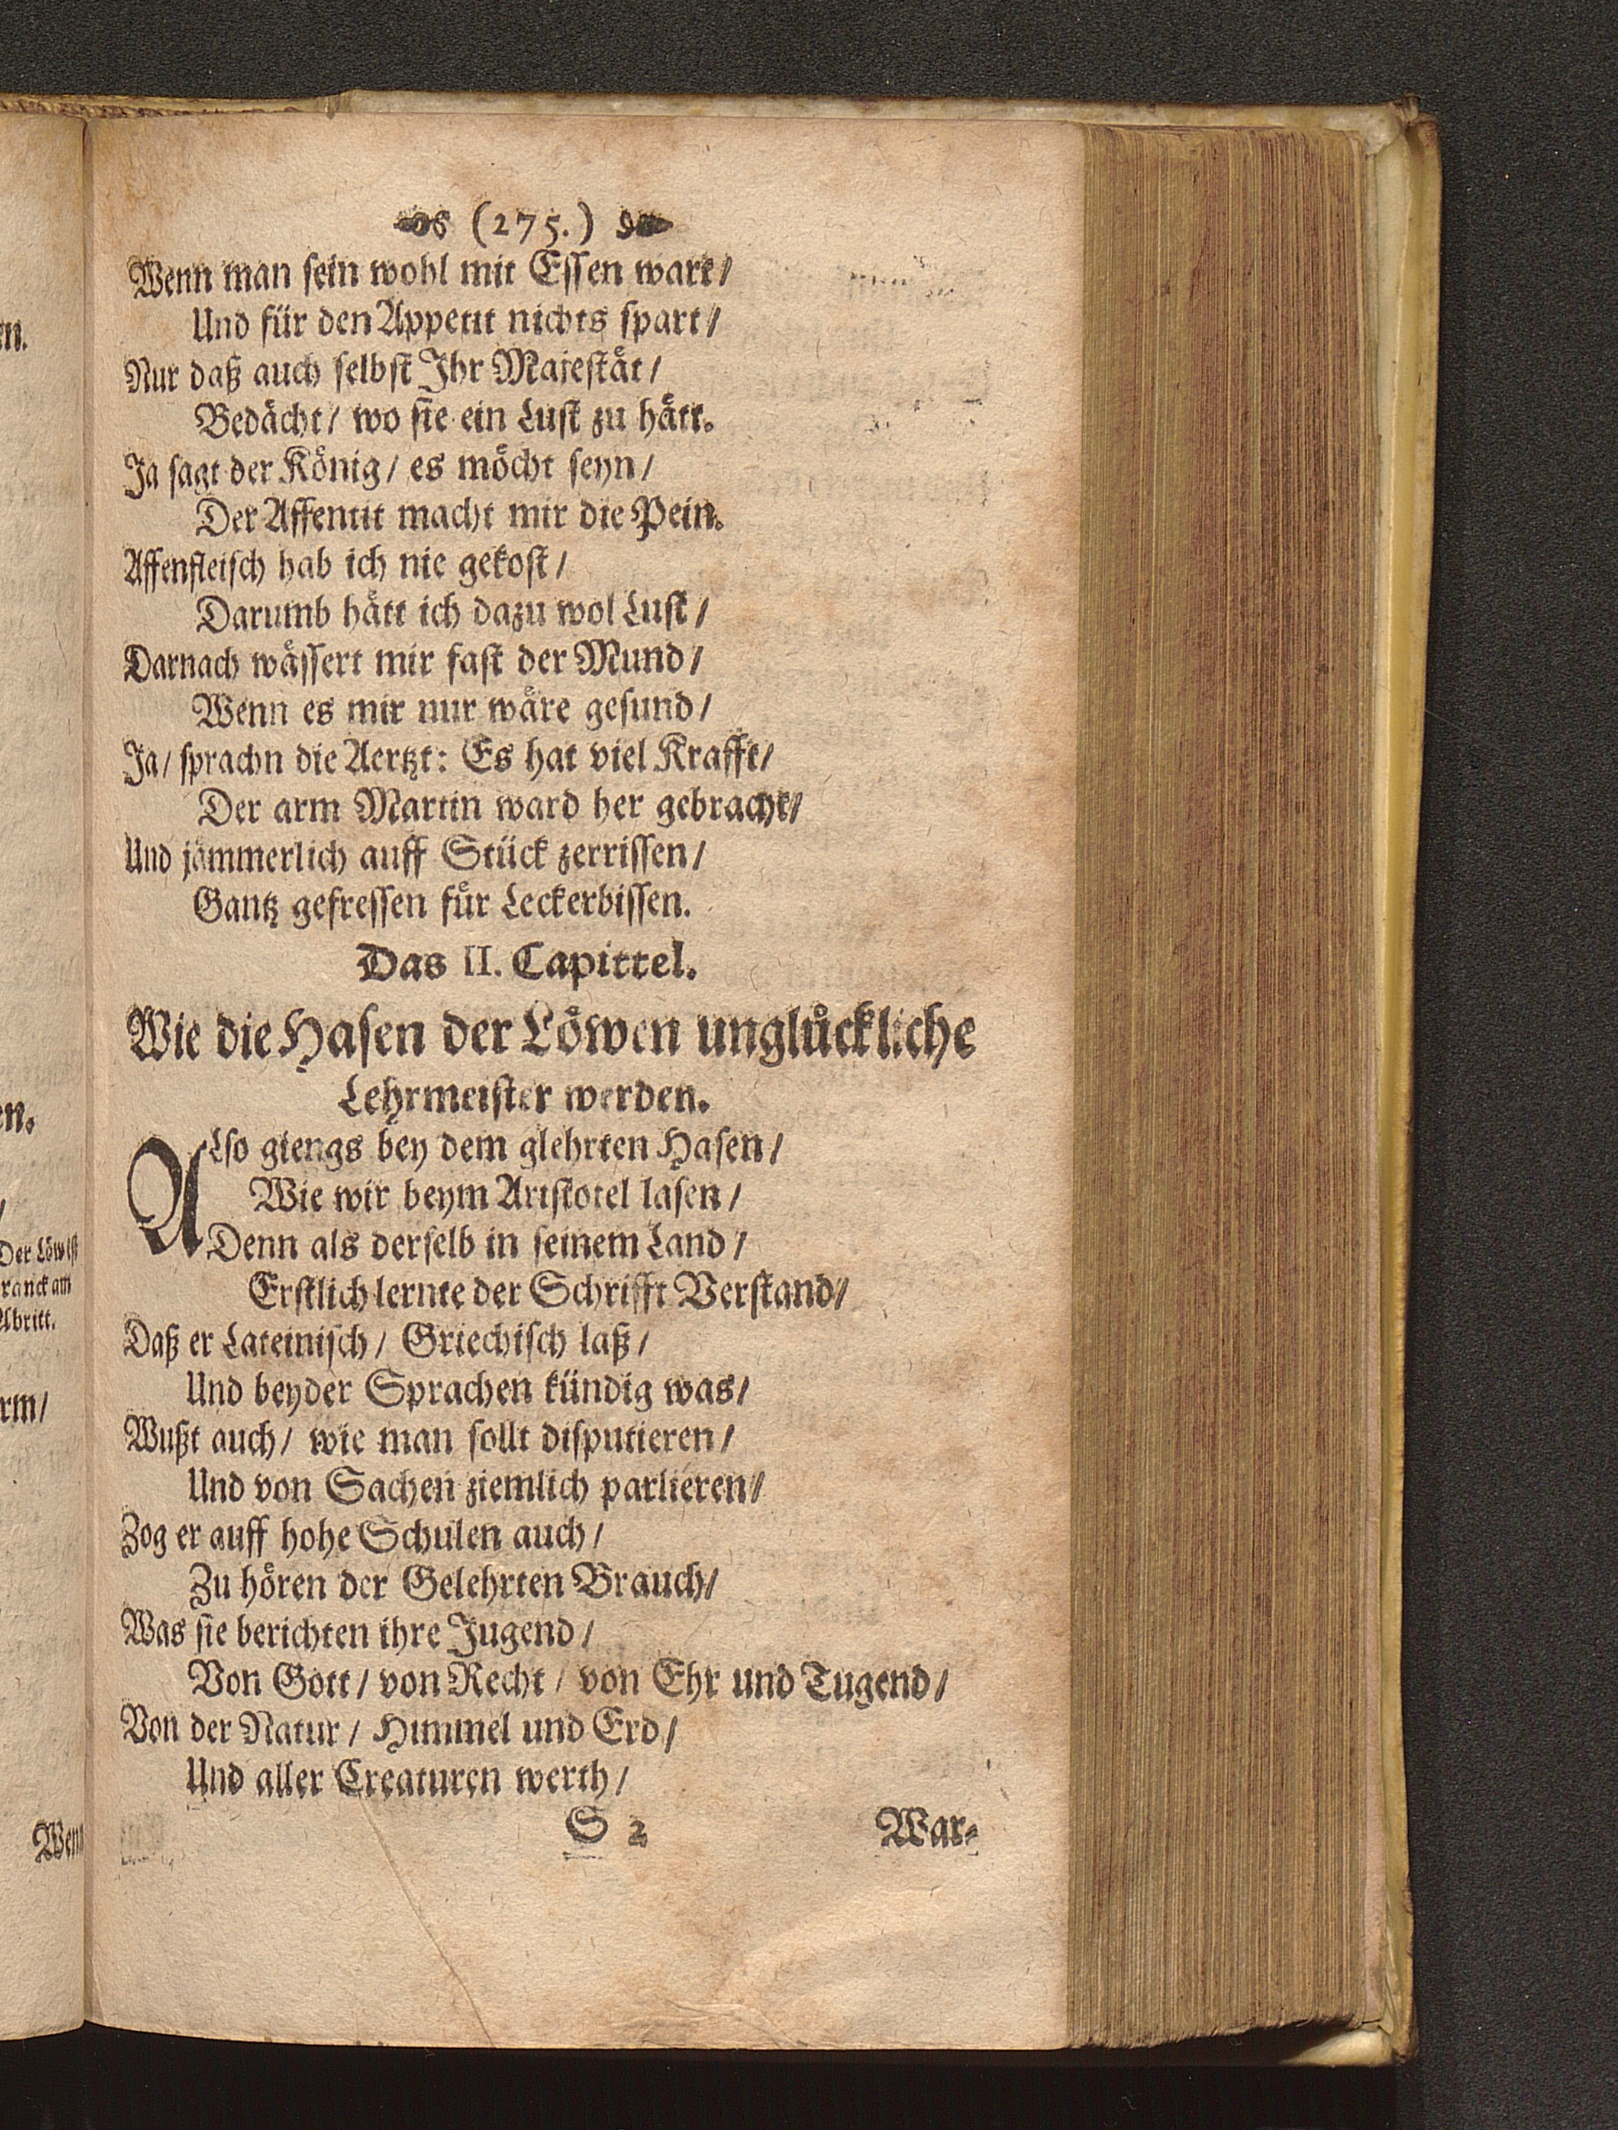 (275.)
Wenn man sein wohl mit Essen wart/
Und für den Appetit nichts spart/
Nur daß auch selbst Ihr Majestät/
Bedächt/ wo sie ein Lust zu hätt.
Ja sagt der König/ es möcht seyn/
Der Affentit macht mir die Pein.
Affenfleisch hab ich nie gekost/
Darumb hätt ich dazu wol Lust/
Darnach wässert mir fast der Mund/
Wenn es mir nur wäre gesund/
Ja/ sprachn die Aertzt: Es hat viel Krafft/
Der arm Martin ward her gebracht/
Und jämmerlich auff Stück zerrissen/
Gantz gefressen für Leckerbissen.
Das II. Capittel.
Wie die Hasen der Löwen unglückliche
Lehrmeister werden.
ALso giengs bey dem glehrten Hasen/
Wie wir beym Aristotel lasen/
Denn als derselb in seinem Land/
Erstlich lernte der Schrifft Verstand/
Daß er Lateinisch/ Griechisch laß/
Und beyder Sprachen kündig was/
Wußt auch/ wie man sollt disputieren/
Und von Sachen ziemlich parlieren/
Zog er auff hohe Schulen auch/
Zu hören der Gelehrten Brauch/
Was sie berichten ihre Jugend/
Von Gott/ von Recht/ von Ehr und Tugend/
Von der Natur/ Himmel und Erd/
Und aller Creaturen werth/
S 2 War-